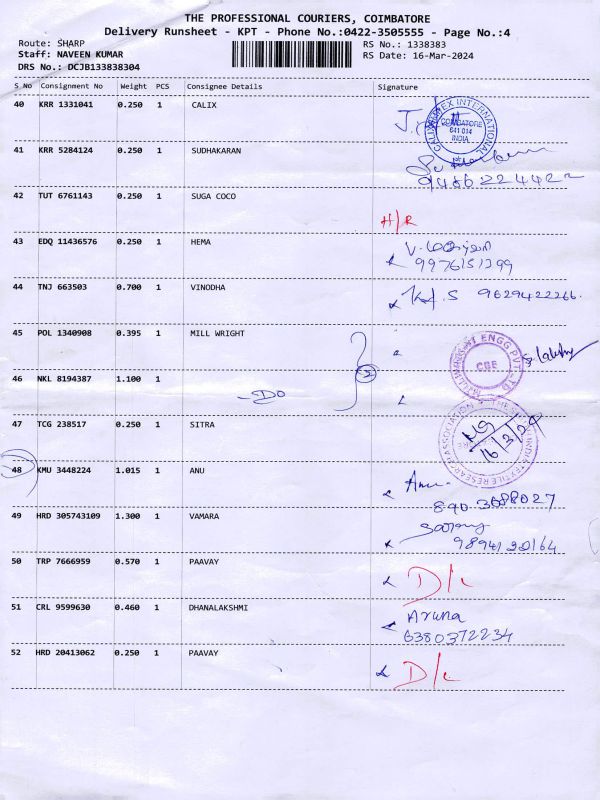 THE PROFESSIONAL COURIERS, COIMBATORE
Delivery Runsheet - KPT - Phone No.:0422-3505555 - Page No.:4
Route: SHARP
RS No.: 1338383
Staff: NAVEEN KUMAR
RS Date: 16-Mar-2024
DRS No.: DCJB133838304
S No Consignment No Weight PCS Consignee Details Signature
40 KRR 1331041 0.250 1 CALIX
COIMBATORE
641 014
INDIA
41 KRR 5284124 0.250 1 SUDHAKARAN
9486224422
42 TUT 6761143 0.250 1 SUGA COCO
H/R
43 EDQ 11436576 0.250 1 HEMA
9976151399
44 TNJ 663503 0.700 1 VINODHA
9629422266.
45 POL 1340908 0.395 1 MILL WRIGHT
CBE
46 NKL 8194387 1.100 1
-DO
2
47 TCG 238517 0.250 1 SITRA
16/3/24
48 KMU 3448224 1.015 1 ANU
Anu
890 3688027
49 HRD 305743109 1.300 1 VAMARA
50 TRP 7666959 0.570 1 PAAVAY
D/L
51 CRL 9599630 0.460 1 DHANALAKSHMI
Aruna
6380372234
52 HRD 20413062 0.250 1 PAAVAY
D/L